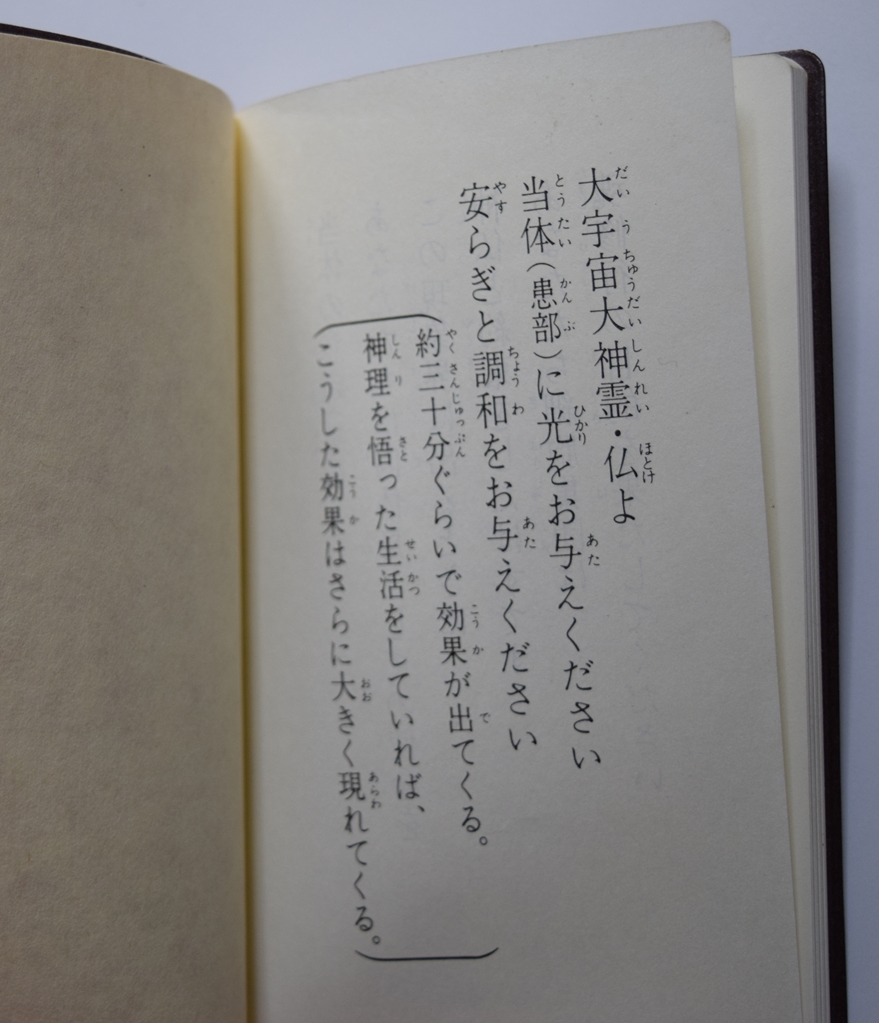 大宇宙大神霊・仏よ
当体（患部）に光をお与えください
安らぎと調和をお与えください
（約三十分ぐらいで効果が出てくる。
神理を悟った生活をしていれば、
こうした効果はさらに大きく現れてくる。）